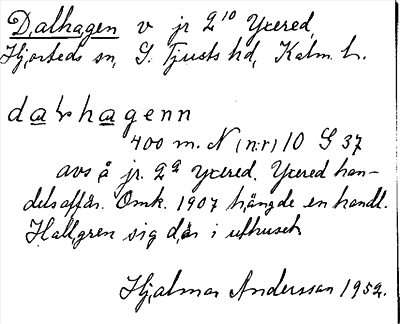 Dalhagen v jr 2¹⁰ Yxered,
Hjorteds sn, S. Tjusts hd, Kalm. l.
dalhagenn
400 m. N (nr) 10 S 37
avs å jr. 2² Yxered. Yxered han-
delsaffär. Omk. 1907 hängde en handl.
Hallgren sig där i uthuset
Hjalmar Andersson 1952.